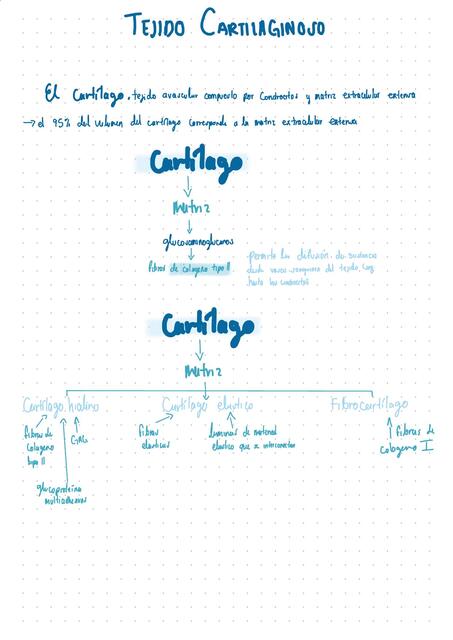 TEJIDO CARTILAGINOSO
El Cartílago. tejido avascular compuesto por Condrocitos y matriz extracelular extensa
→ el 95% del volumen del cartílago corresponde a la matriz extracelular extensa
Cartílago
Matriz
glucosaminoglucanos
fibras de colageno tipo II
permite la difusión de sustancia
desde vasos sanguineos del tejido conj
hasta los condrocitos
Cartílago
Matriz
Cartílago hialino
Cartílago elastico
Fibrocartílago
fibras de
colageno
tipo II
GAGs
glucoproteína
multiadhesivas
fibras
elasticas
laminas de material
elastico que se interconectan
fibras de
colageno I